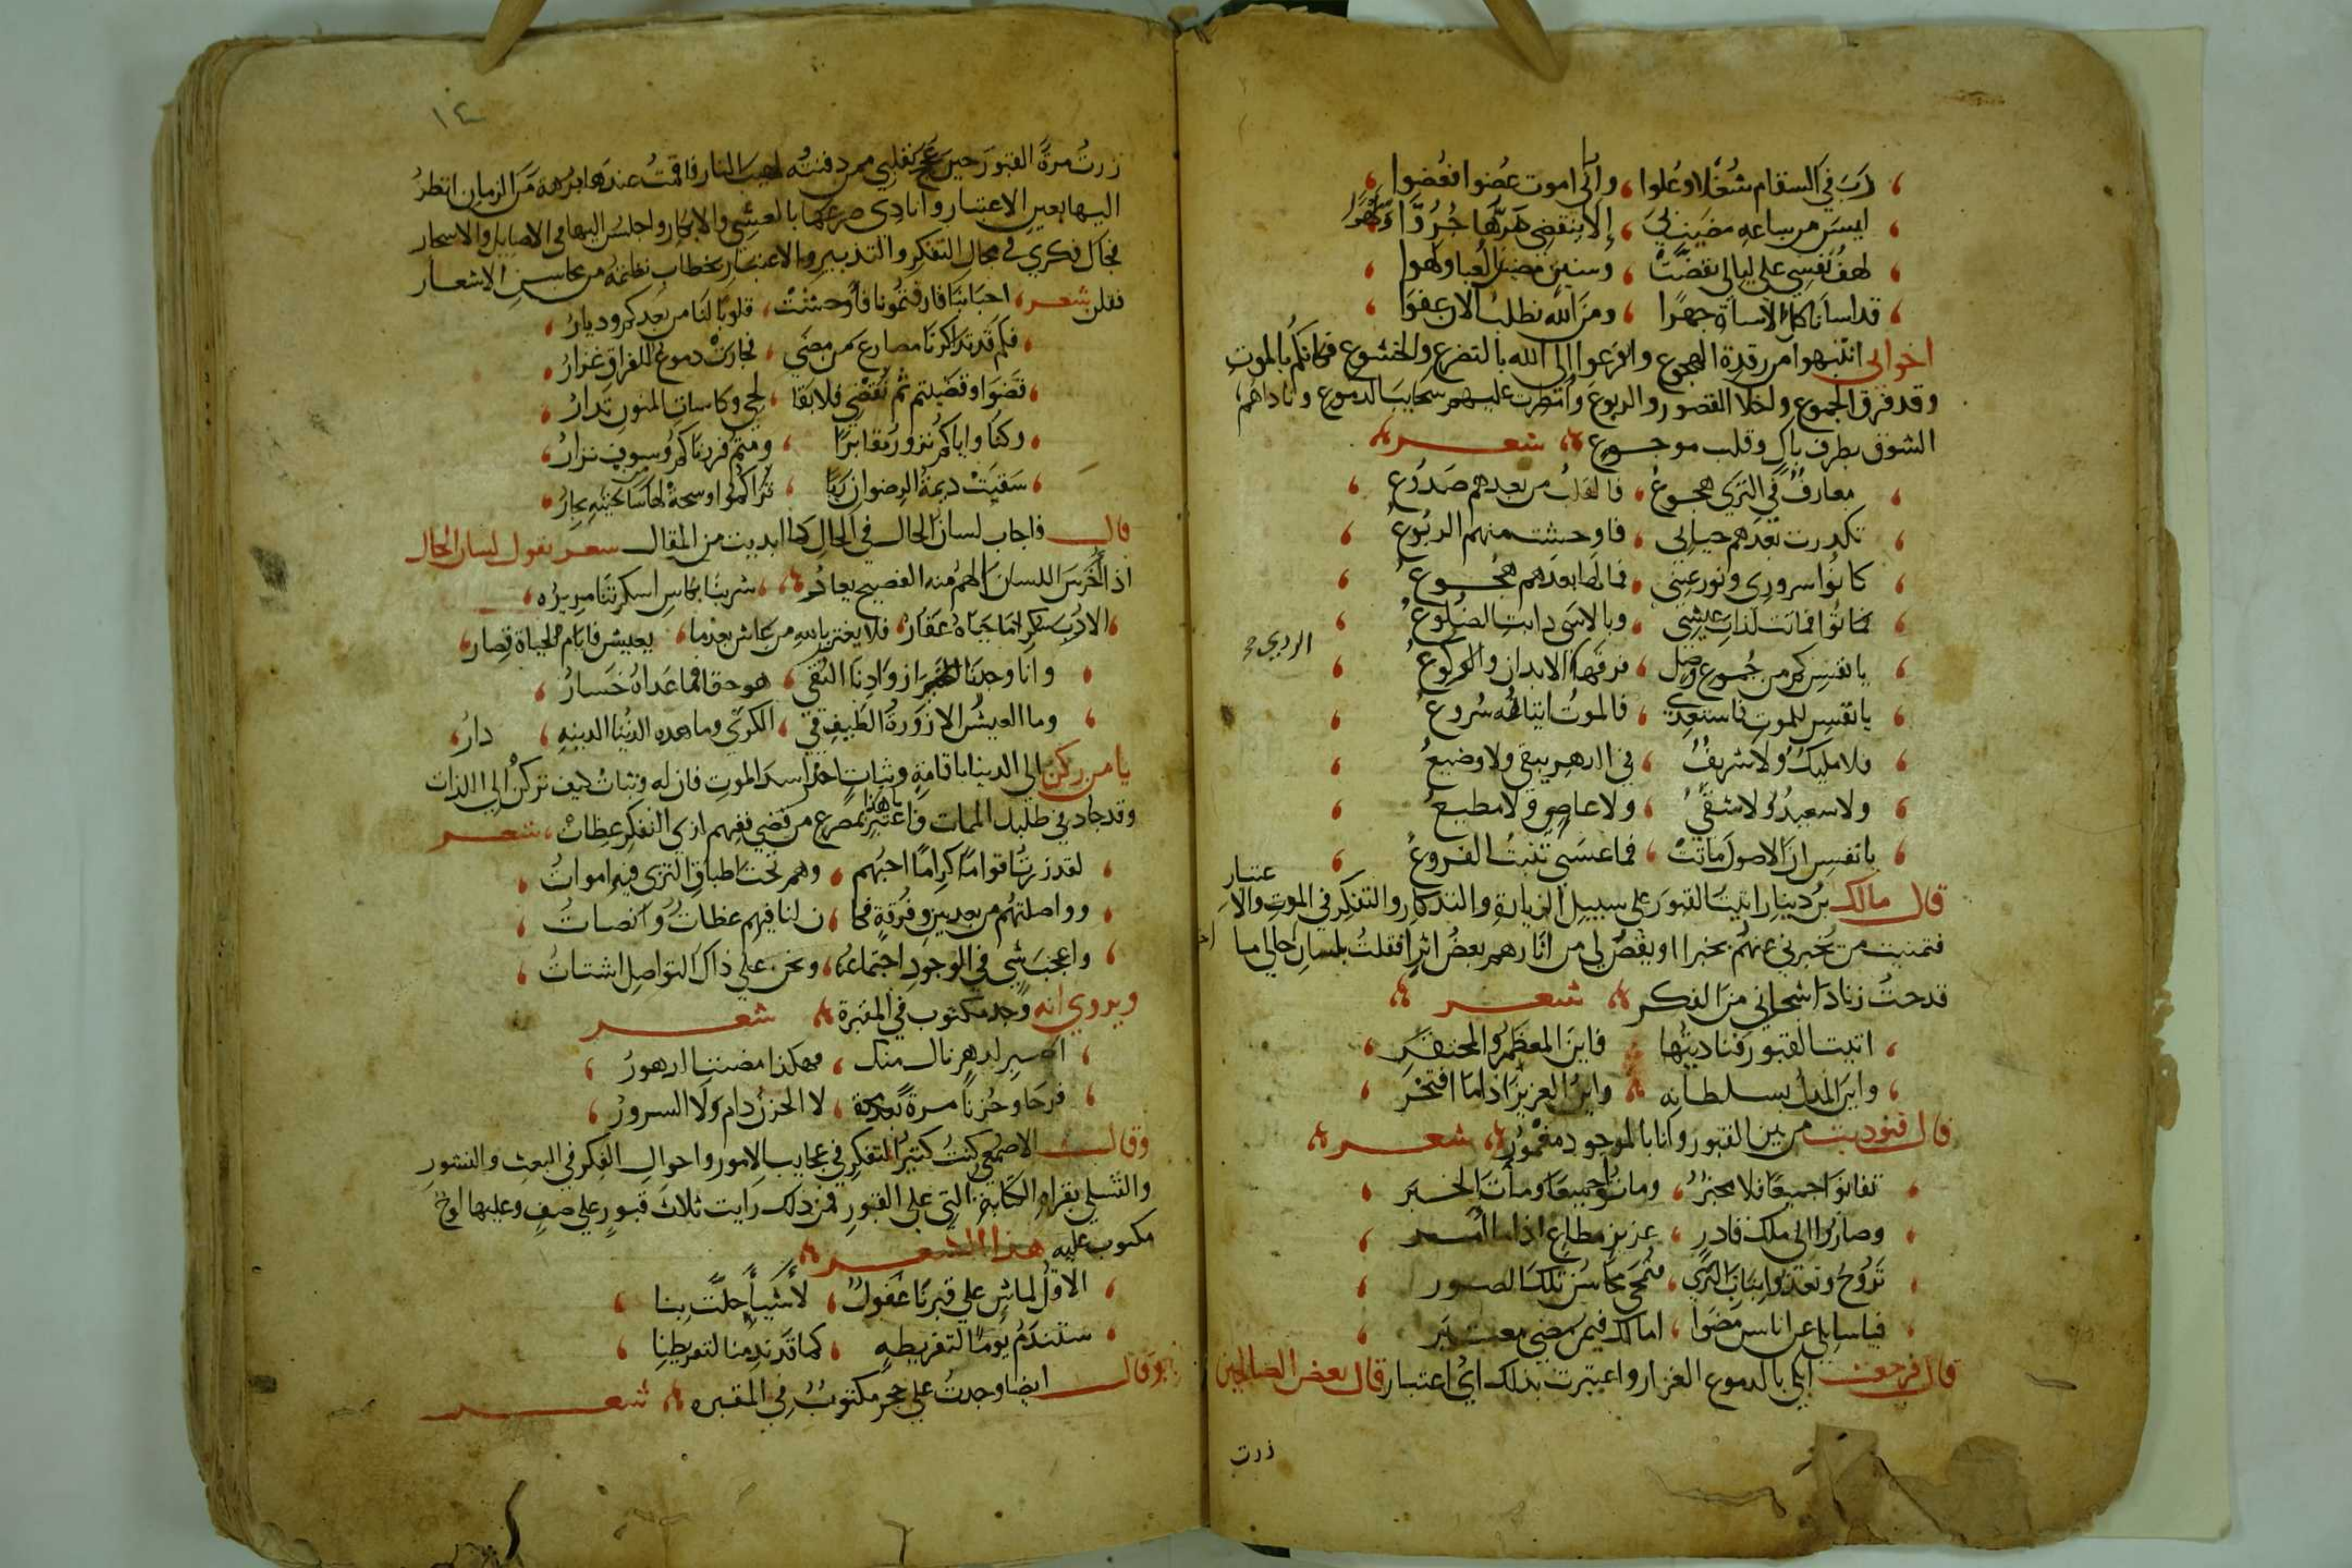 دب في السقام سُفلا وعُلوا ، واني اموت عضوا فعضوا
ليس من ساعة مضين لي ، إلا بنقضي مرّها
لهف نفسي على ليالي تقضت ، وسنين مضين لعبا ولهوا
قد اسانا كل الاساة جهرًا ، ومن الله نطلب الان عفوا
اخواني انتبهوا من رقدة الهجوع وافزعوا إلى الله بالتضرع والخشوع فكانكم بالموت
وقد فرق الجموع واخلا القصور والربوع وأمطرت عليهم سحايب الدموع وناداهم
الشوق بطرف باكٍ وقلب موجوع شعر
معارفٌ في الثرى هجوعُ ، فالقلب من بعدهم صدوع
تكدرت بعدهم حياتي ، فاوحشت منهم الربوعُ
كانوا سروري ونور عيني ، فما لها بعدهم هجوع
فماتوا فماتت لذات عيشي ، وبالاسى دابت الضلوع
يا نفس كم من جموع وصل ، فرقها الابدان والركوع
الردي
يا نفس للموت فاستعدي ، فالموت اتيانه سُروع
فلا مليكٌ ولا شريفٌ ، في الدهر يبقى ولا وضيعُ
ولا سعيدٌ ولا شقيٌ ، ولا عاصي ولا مطيعُ
يا نفس ان الاصول ماتت ، فما عسى تنبت الفروعُ
قال مالك بن دينار اتيت القبور على سبيل الزيارة والتذكار والتفكر في الموت والا
عتبار
فتمنيت من يُخبرني عنهُم بخبرا او يقصّ لي من اثارهم بعضُ اثرا فقلتُ بلسان حالي لما
قدحتُ زناد اشجاني من الفكر شعر
اتيت القبور فناديتُها فاين المعظم والمحتقر
واين المدل بسلطانه واين العزيز اذا ما افتخر
قال فنوديت من بين القبور وانا بالموجود مغمور شعر
تفانوا جميعًا فلا مخبرُ ، وماتوا جميعًا ومات الخبر
وصاروا الى ملك قادر ، عزيز مطاع اذا ما امر
تروحُ وتغدوا بنات الثرى ، فتمحى محاسن تلك الصور
فيا سايلي عن اناس مضوا ، اما لك فيمن مضى معتبر
قال فرجعت ابكي بالدموع الغزار واعتبرت بذلك اي اعتبار قال بعض الصالحين
زرت
١٤
زرتُ مرةً القبور حين بقلبي ممن دفنتُه لهيب النار فاقمتُ عندها برهة من الزمان انظر
اليها بعين الاعتبار وانادى صرعها بالعشي والابكار واجلس اليها في الاصايل والاسحار
فجال فكري في مجال التفكر والتدبير والاعتبار بخطاب نظمته من محاسن الاشعار
فقلت شعر ، احبابنا فارقتمونا فأوحشتْ ، قلوبًا لنا من بعدكم وديارُ ،
فكم قد تذاكرنا مصارع من مضى ، فجارت دموع للفراق غزارُ ،
، قضوا وقضيتم ثم نقضي فلا بقا ، لحي وكاسات المنون تدارُ ،
، وكنا واياكم نزور مقابرًا ، ومتم فزرناكم وسوف نزارُ ،
، سقيتْ ديمةُ الرضوان
قال فاجاب لسان الحال في الحال كما ابديت من المقال شعر بقول لسان الحال
اذا اخرس اللسان الهم منه الفصيح يعادُ شربنا بكاس اسكرتنا مريره ،
، الا رُبّ سكر اتما جناه عقار ، فلا يغتر بالله من عاش بعد ما ، يعيش فايام الحياة قِصار ،
، وانا وجدنا ازوادنا التقى ، هو حقا فما عداه خَسارُ ،
، وما العيش الا زورةُ الطيف في ، الكرى وما هذه الدنيا الدينه ، دارُ ،
يا من ركن إلى الدنيا باقامةٍ وثباتٍ احذر اسد الموت فان له وثباتٌ كيف تركن إلى اللذات
وقد جاد في طلبك الممات واعتبر يا هذا بمصرع من قضي ففيهم لذي التفكر عظات ، شعر
، لقد زرتُ اقوامًا كرامًا احبُهم ، وهم تحت اطباق الثرى فيه امواتُ ،
، وواصلتهُم من بعد بين وفرقة فكا ، ن لنا فيهم عظاتٌ وانصاتُ ،
، واعجب شي في الوجود اجتماعنا ، ونحن على ذاك التواصل اشتاتُ ،
ويروى انه وجد مكتوب في المقبرة شعر
، لدهرٍ نال منك ، فهكذا مضت الدهورُ ،
، فرحًا وحُزنًا مرةً بعد مرة ، لا الحزن دام ولا السرورُ ،
وقال الاصمعي كنتُ كثير التفكر في عجايب الامور واحوال الفكر في البعث والنشور
والتسلي بقراة الكتابة التي على القبور فمن ذلك رايت ثلاث قبور على صف وعليها لوح
مكتوب عليه هذا الشعر
، الا قُل لماشٍ على قبرنا غفولٌ ، لأشيآ حلّت بنا ،
، ستندم يومًا لتفريطه ، كما قد ندمنا لتفريطنا ،
وقال ايضا وجدتُ على حجر مكتوبٌ في المقبره شعر